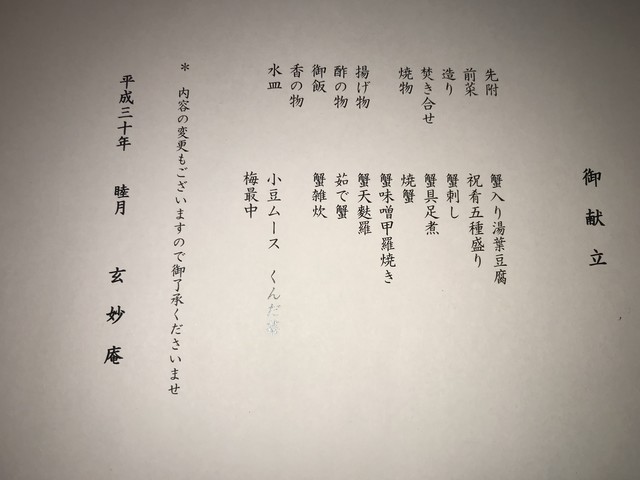 御献立
先附 蟹入り湯葉豆腐
前菜 祝肴五種盛り
造り 蟹刺し
焚き合せ 蟹具足煮
焼物 焼蟹
蟹味噌甲羅焼き
揚げ物 蟹天麩羅
酢の物 茹で蟹
御飯 蟹雑炊
香の物
水皿 小豆ムース くんだ
梅最中
* 内容の変更もございますので御了承くださいませ
平成三十年 睦月 玄妙庵